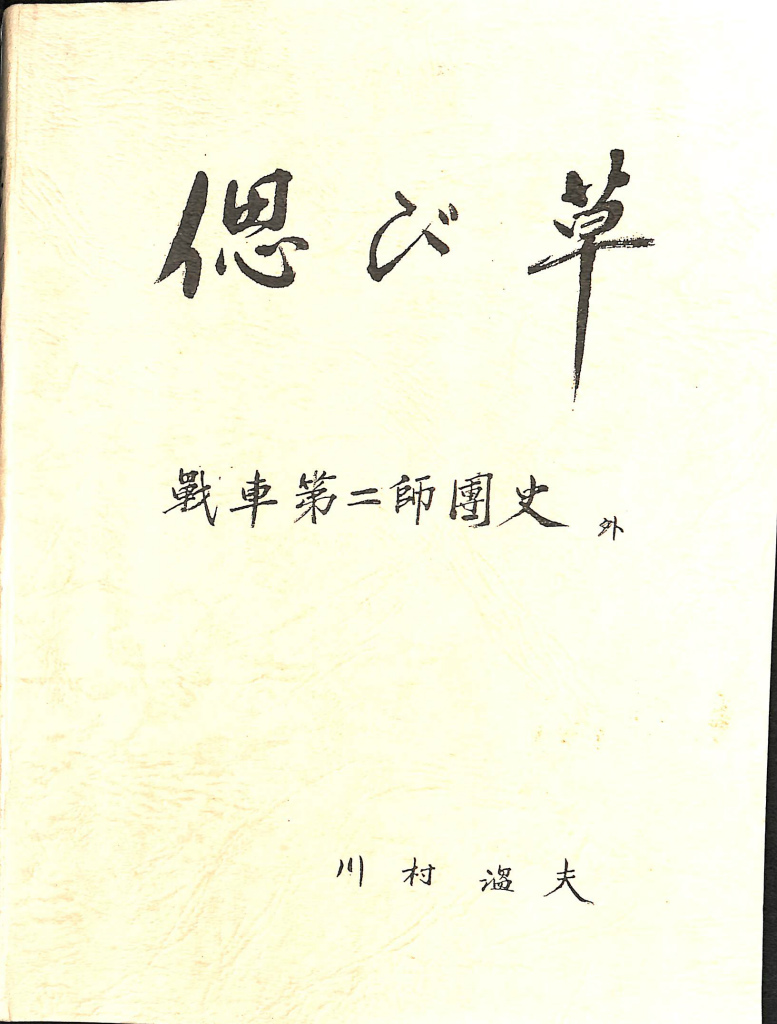 偲び草
戰車第二師團史 外
川村 夫